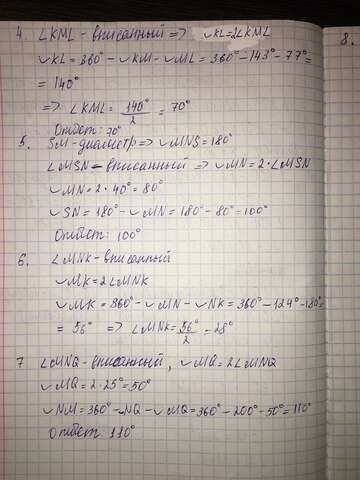 4 ∠KML - вписанный => ◡KL=2∠KML
◡KL = 360° - ◡KM - ◡ML = 360° - 143° - 77° =
= 140°
=> ∠KML = 140°/2 = 70°
Ответ: 70°
5. SM - диаметр => ◡MNS = 180°
∠MSN - вписанный => ◡MN = 2·∠MSN
◡MN = 2·40° = 80°
◡SN = 180° - ◡MN = 180° - 80° = 100°
Ответ: 100°
6. ∠MNK - вписанный
◡MK = 2∠MNK
◡MK = 360° - ◡MN - ◡NK = 360° - 124° - 180° =
= 56° => ∠MNK = 56°/2 = 28°
7 ∠MNQ - вписанный, ◡MQ = 2∠MNQ
◡MQ = 2·25° = 50°
◡NM = 360° - ◡NQ - ◡MQ = 360° - 200° - 50° = 110°
Ответ 110°
8.